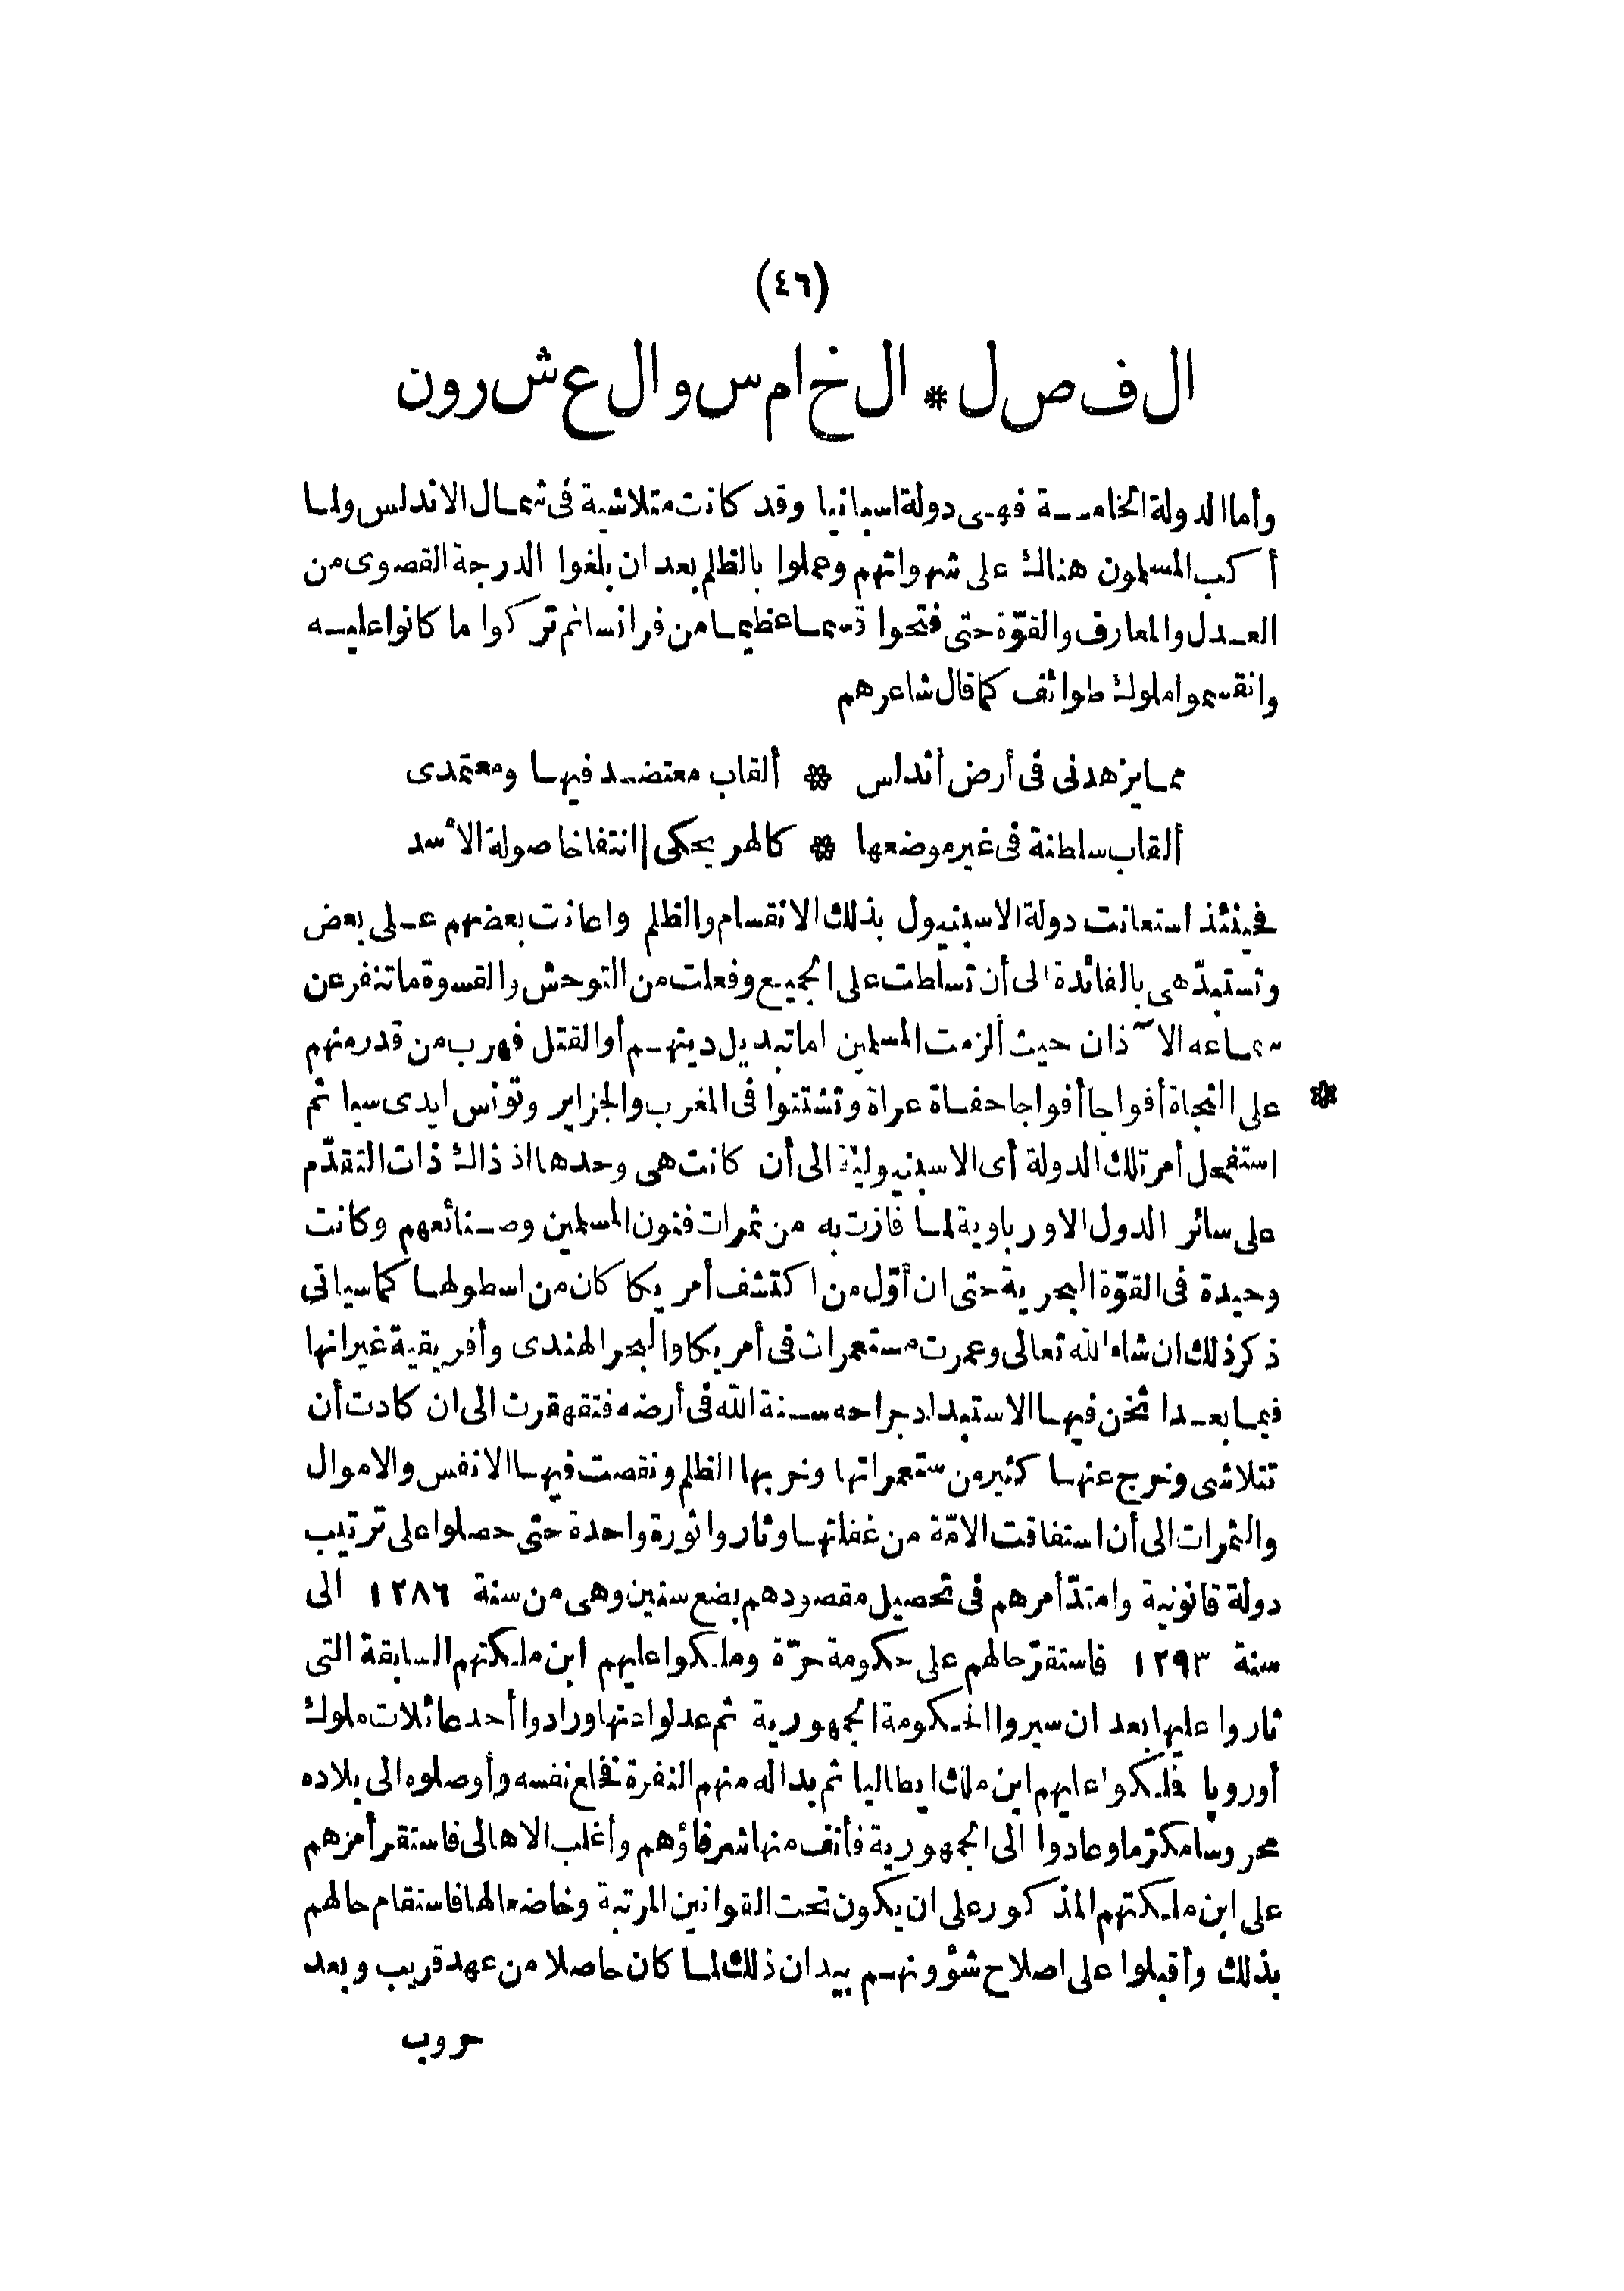 (٤٦)
الفصل * الخامس والعشرون
وأما الدولة الخامسة فهى دولة اسبانيا وقد كانت متلاشية فى شمال الاندلس ولما
أكب المسلمون هناك على شهواتهم وعملوا بالظلم بعد ان بلغوا الدرجة القصوى من
العدل والمعارف والقوّة حتى فتحوا قسما عظيما من فرانسا ثم تركوا ما كانوا عليه
وانقسموا ملوك طوائف كما قال شاعرهم
مما يزهدنى فى أرض أندلس * ألقاب معتضد فيها ومعتمدى
ألقاب سلطنة فى غير موضعها * كالهر يحكى انتفاخا صولة الأسد
فحينئذ استعانت دولة الاسبنيول بذلك الانقسام والظلم واعانت بعضهم على بعض
وتستبدّ هى بالفائدة الى أن تسلطت على الجميع وفعلت من التوحش والقسوة ما تنفر عن
سماعه الآذان حيث ألزمت المسلمين اما تبديل دينهم أو القتل فهرب من قدر منهم
* على النجاة أفواجا أفواجا حفاة عراة وتشتتوا فى المغرب والجزاير وتونس ايدى سبا ثم
استفحل أمر تلك الدولة أى الاسبنيولية الى أن كانت هى وحدها اذ ذاك ذات التقدّم
على سائر الدول الاورباوية لما فازت به من ثمرات فنون المسلمين وصنائعهم وكانت
وحيدة فى القوّة البحرية حتى ان أوّل من اكتشف أمريكا كان من اسطولها كما سياتى
ذكر ذلك ان شاء الله تعالى وعمرت مستعمرات فى أمريكا والبحر الهندى وأفريقية غير انها
فيما بعد اثخن فيها الاستبداد جراحه سنة الله فى أرضه فتقهقرت الى ان كادت أن
تتلاشى وخرج عنها كثير من ستعمراتها وخربها الظلم ونقصت فيها الانفس والاموال
والثمرات الى أن استفاقت الامّة من غفلتها وثاروا ثورة واحدة حتى حصلوا على ترتيب
دولة قانونية وامتدّ أمرهم فى تحصيل مقصودهم بضع سنين وهى من سنة ١٢٨٦ الى
سنة ١٢٩٣ فاستقرّ حالهم على حكومة حرّة وملكوا عليهم ابن ملكتهم السابقة التى
ثاروا عليها بعد ان سيروا الحكومة الجمهورية ثم عدلوا عنها ورادوا أحد عائلات ملوك
أوروپا فملكوا عليهم ابن ملك ايطاليا ثم بدا له منهم النفرة فخلع نفسه وأوصلوه الى بلاده
محروسا مكرّما وعادوا الى الجمهورية فأنف منها شرفاؤهم وأغلب الاهالى فاستقر أمرهم
على ابن ملكتهم المذكور على ان يكون تحت القوانين المرتبة وخاضعا لها فاستقام حالهم
بذلك وأقبلوا على اصلاح شؤونهم بيد ان ذلك لما كان حاصلا من عهد قريب وبعد
حروب